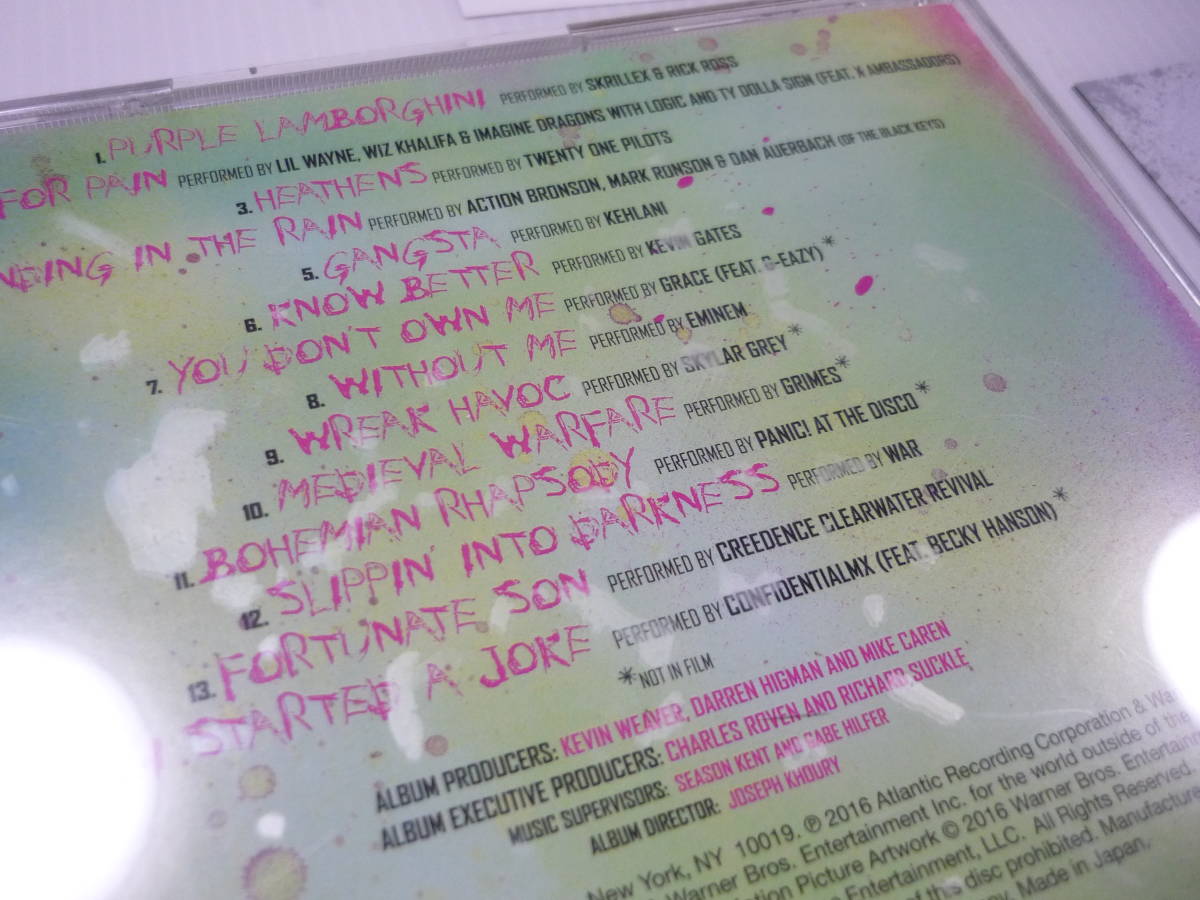 1. PURPLE LAMBORGHINI PERFORMED BY SKRILLEX & RICK ROSS
FOR PAIN PERFORMED BY LIL WAYNE, WIZ KHALIFA & IMAGINE DRAGONS WITH LOGIC AND TY DOLLA SIGN (FEAT. X AMBASSADORS)
3. HEATHENS PERFORMED BY TWENTY ONE PILOTS
NDING IN THE RAIN PERFORMED BY ACTION BRONSON, MARK RONSON & DAN AUERBACH (OF THE BLACK KEYS)
5. GANGSTA PERFORMED BY KEHLANI
6. KNOW BETTER PERFORMED BY KEVIN GATES
7. YOU DON'T OWN ME PERFORMED BY GRACE (FEAT. G-EAZY)*
8. WITHOUT ME PERFORMED BY EMINEM
9. WREAK HAVOC PERFORMED BY SKYLAR GREY*
10. MEDIEVAL WARFARE PERFORMED BY GRIMES*
11. BOHEMIAN RHAPSODY PERFORMED BY PANIC! AT THE DISCO*
12. SLIPPIN' INTO DARKNESS PERFORMED BY WAR
13. FORTUNATE SON PERFORMED BY CREEDENCE CLEARWATER REVIVAL
I STARTED A JOKE PERFORMED BY CONFIDENTIALMX (FEAT. BECKY HANSON)*
*NOT IN FILM
ALBUM PRODUCERS: KEVIN WEAVER, DARREN HIGMAN AND MIKE CAREN
ALBUM EXECUTIVE PRODUCERS: CHARLES ROVEN AND RICHARD SUCKLE
MUSIC SUPERVISORS: SEASON KENT AND GABE HILFER
ALBUM DIRECTOR: JOSEPH KHOURY
New York, NY 10019. ℗ 2016 Atlantic Recording Corporation & Wa
Warner Bros. Entertainment Inc. for the world outside of the
tion Picture Artwork © 2016 Warner Bros. Entertain
Entertainment, LLC. All Rights Reserved.
of this disc prohibited. Manufacture
Made in Japan.